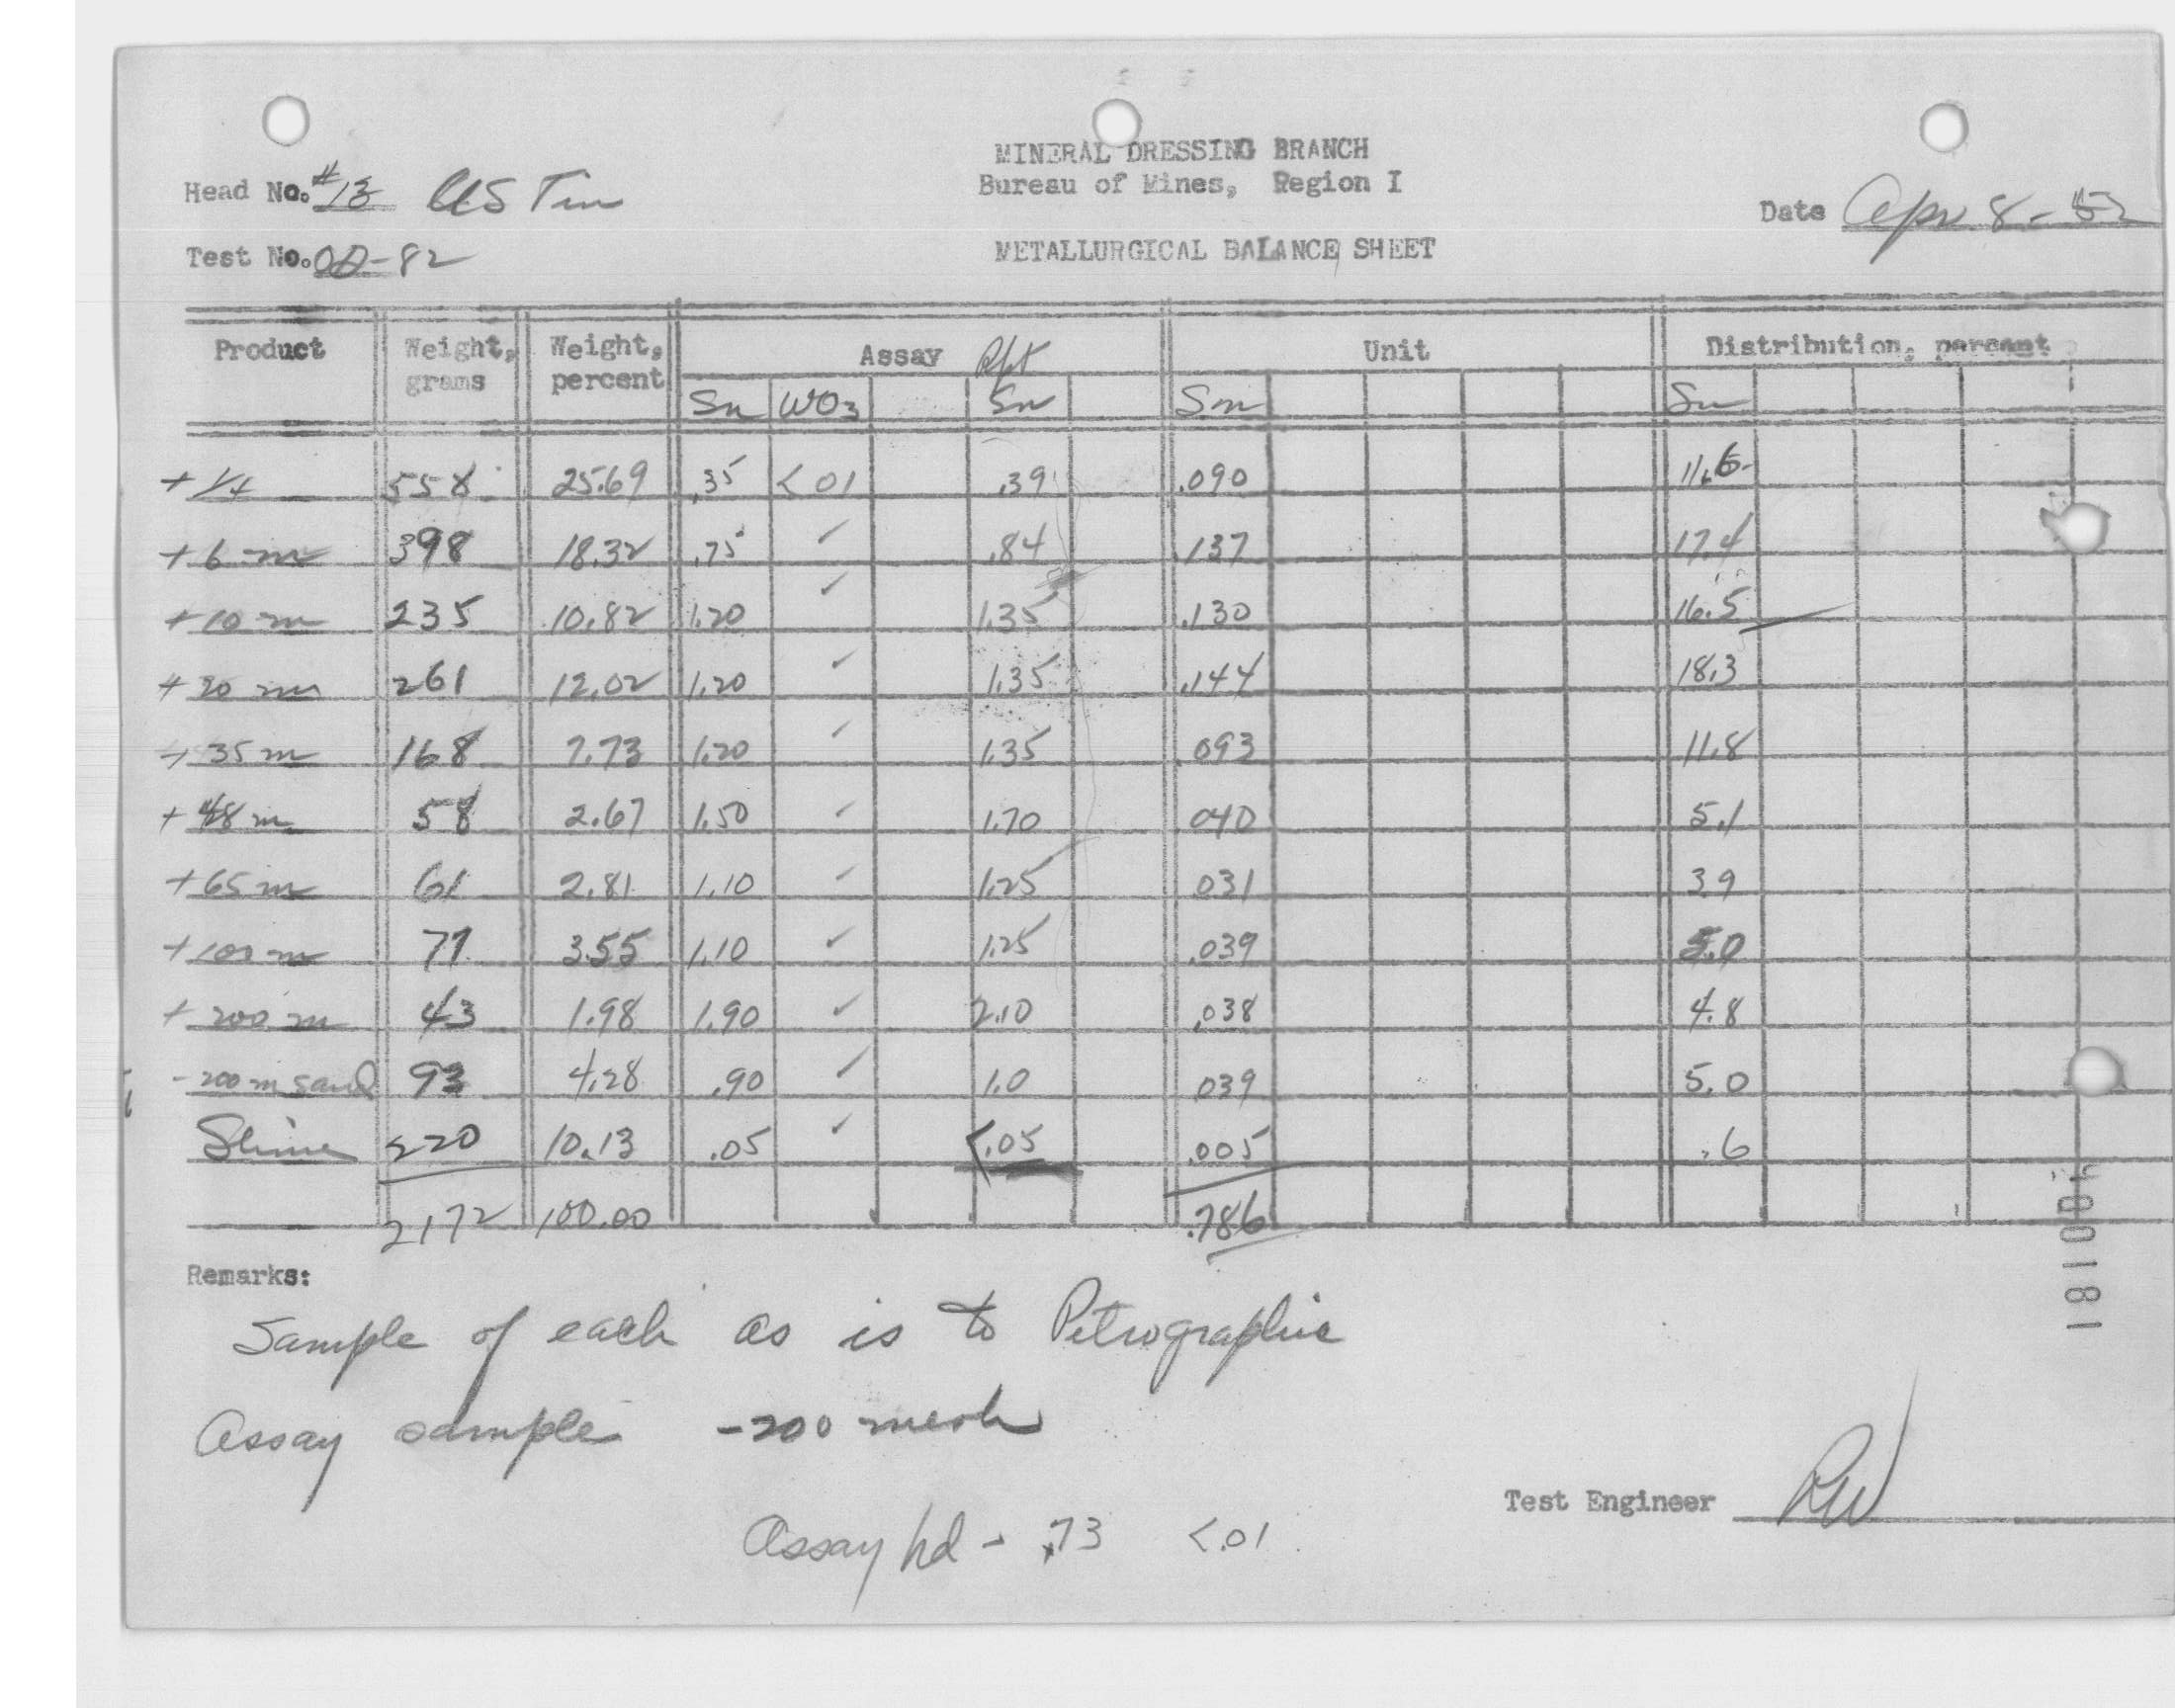 MINERAL DRESSING BRANCH
Head No. #13 US Tin
Bureau of Mines, Region I
Date Apr 8-52
Test No. OD-82
METALLURGICAL BALANCE SHEET
Product Weight, grams Weight, percent Assay Rpt Unit Distribution, percent
Sn WO3 Sn Sn Sn
+ 1/4 558 25.69 .35 <01 .39 .090 11.5
+ 6 m 398 18.32 .75 ✓ .84 .137 17.4
+ 10 m 235 10.82 1.20 ✓ 1.35 .130 16.5
+ 20 m 261 12.02 1.20 ✓ 1.35 .144 18.3
+ 35 m 168 7.73 1.20 ✓ 1.35 .093 11.8
+ 48 m 58 2.67 1.50 ✓ 1.70 040 5.1
+ 65 m 61 2.81 1.10 ✓ 1.25 031 3.9
+ 100 m 77 3.55 1.10 ✓ 1.25 .039 5.0
+ 200 m 43 1.98 1.90 ✓ 2.10 .038 4.8
- 200 m sand 93 4.28 .90 ✓ 1.0 039 5.0
Slime 220 10.13 .05 ✓ <.05 .005 .6
2172 100.00 .786
Remarks:
Sample of each as is to Petrographic
Assay sample -200 mesh
Test Engineer RW
Assay hd - .73 <.01
100181